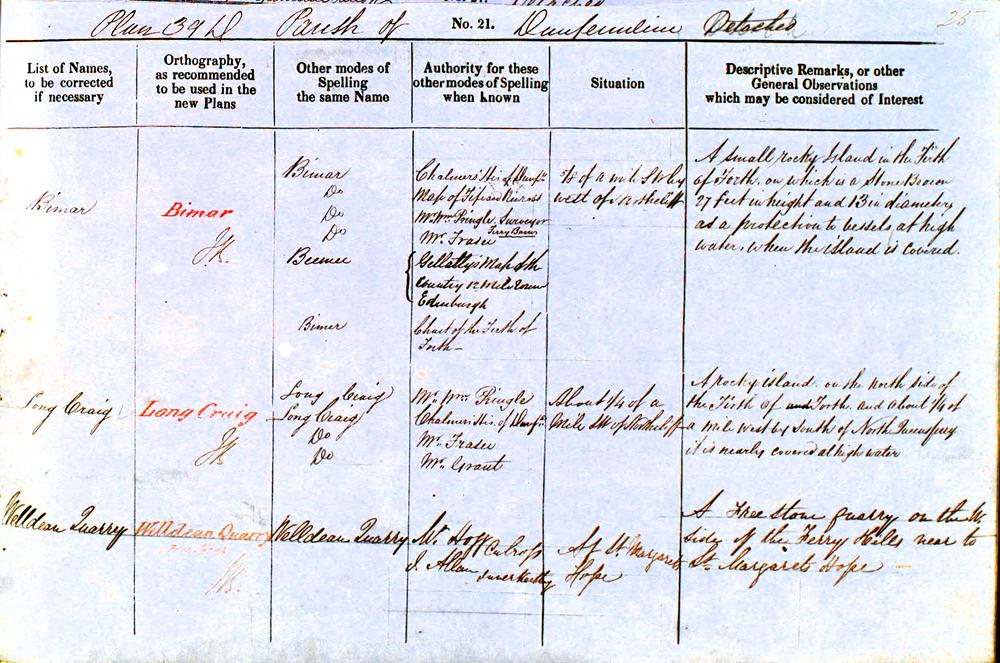 25
Plan 39 D Parish of No. 21. Dunfermline Detached
List of Names,
to be corrected
if necessary
Orthography,
as recommended
to be used in the
new Plans
Other modes of
Spelling
the same Name
Authority for these
other modes of Spelling
when known
Situation
Descriptive Remarks, or other
General Observations
which may be considered of Interest
Bimar
Bimar
Bimar
Do
Do
Do
Beemer
Bimer
Chalmers His. of Dunfn.
Map of Fife and Kinross
Mr. Wm. Pringle Surveyor
Ferry Barns
Mr. Fraser
Gellatly's Map of the
Country 12 Miles round
Edinburgh
Chart of the Firth of
Forth
of a mile S.W. by
west of
A small rocky Island in the Firth
of Forth, on which is a Stone Beacon
27 feet in height and 13 in diameter,
as a protection to vessels, at high
water, when the island is covered.
Long Craig
Long Craig
Long Craig
Long Craig
Do
Do
Mr. Wm. Pringle
Chalmers His. of Dunfn.
Mr. Fraser
Mr. Grant
About 1/4 of a
Mile SW of
A rocky island on the north side of
the Firth of and Forth and about 1/4 of
a mile west by South of North Queensferry
it is nearly covered at high water
Welldean Quarry
Welldean Quarry
Free Stone
Welldean Quarry
Mr. Hogg Culross
J. Allan Inverkeithing
At St. Margarets
Hope
A Free stone quarry on the W.
side of the Ferry Hills near to
St. Margarets Hope